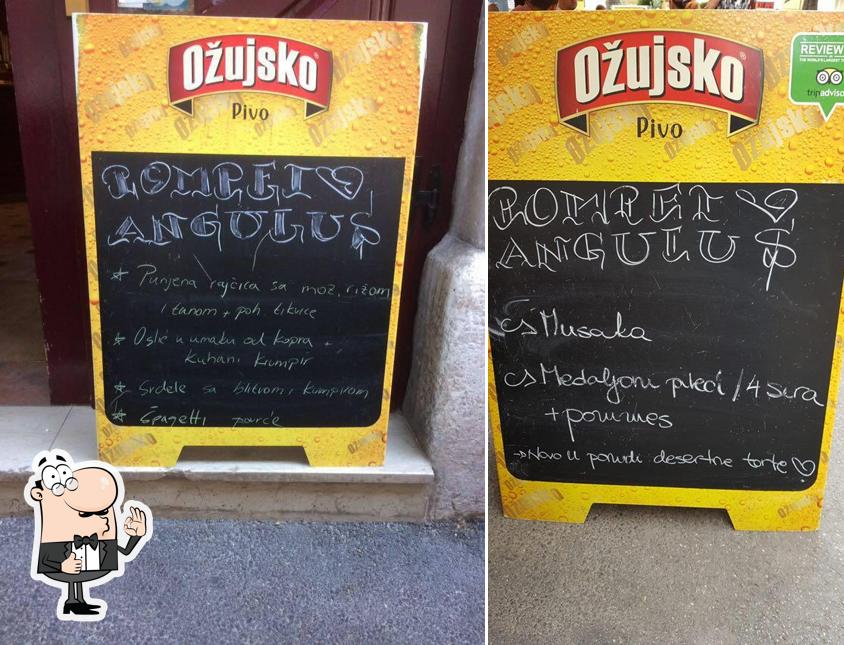 Ožujsko
Pivo
POMPEI
ANGULUS
Punjena rajčica sa moz, rižom
i tanom + poh tikvice
Oslić u umaku od kopra +
kuhani krumpir
Srdele sa blitvom i krumpirom
Špagetti povrće
Ožujsko
Pivo
REVIEW
tripadviso
POMPEI
ANGULUS
Musaka
Medaljoni pileći / 4 sira
+ pommes
Novo u ponudi desertne torte